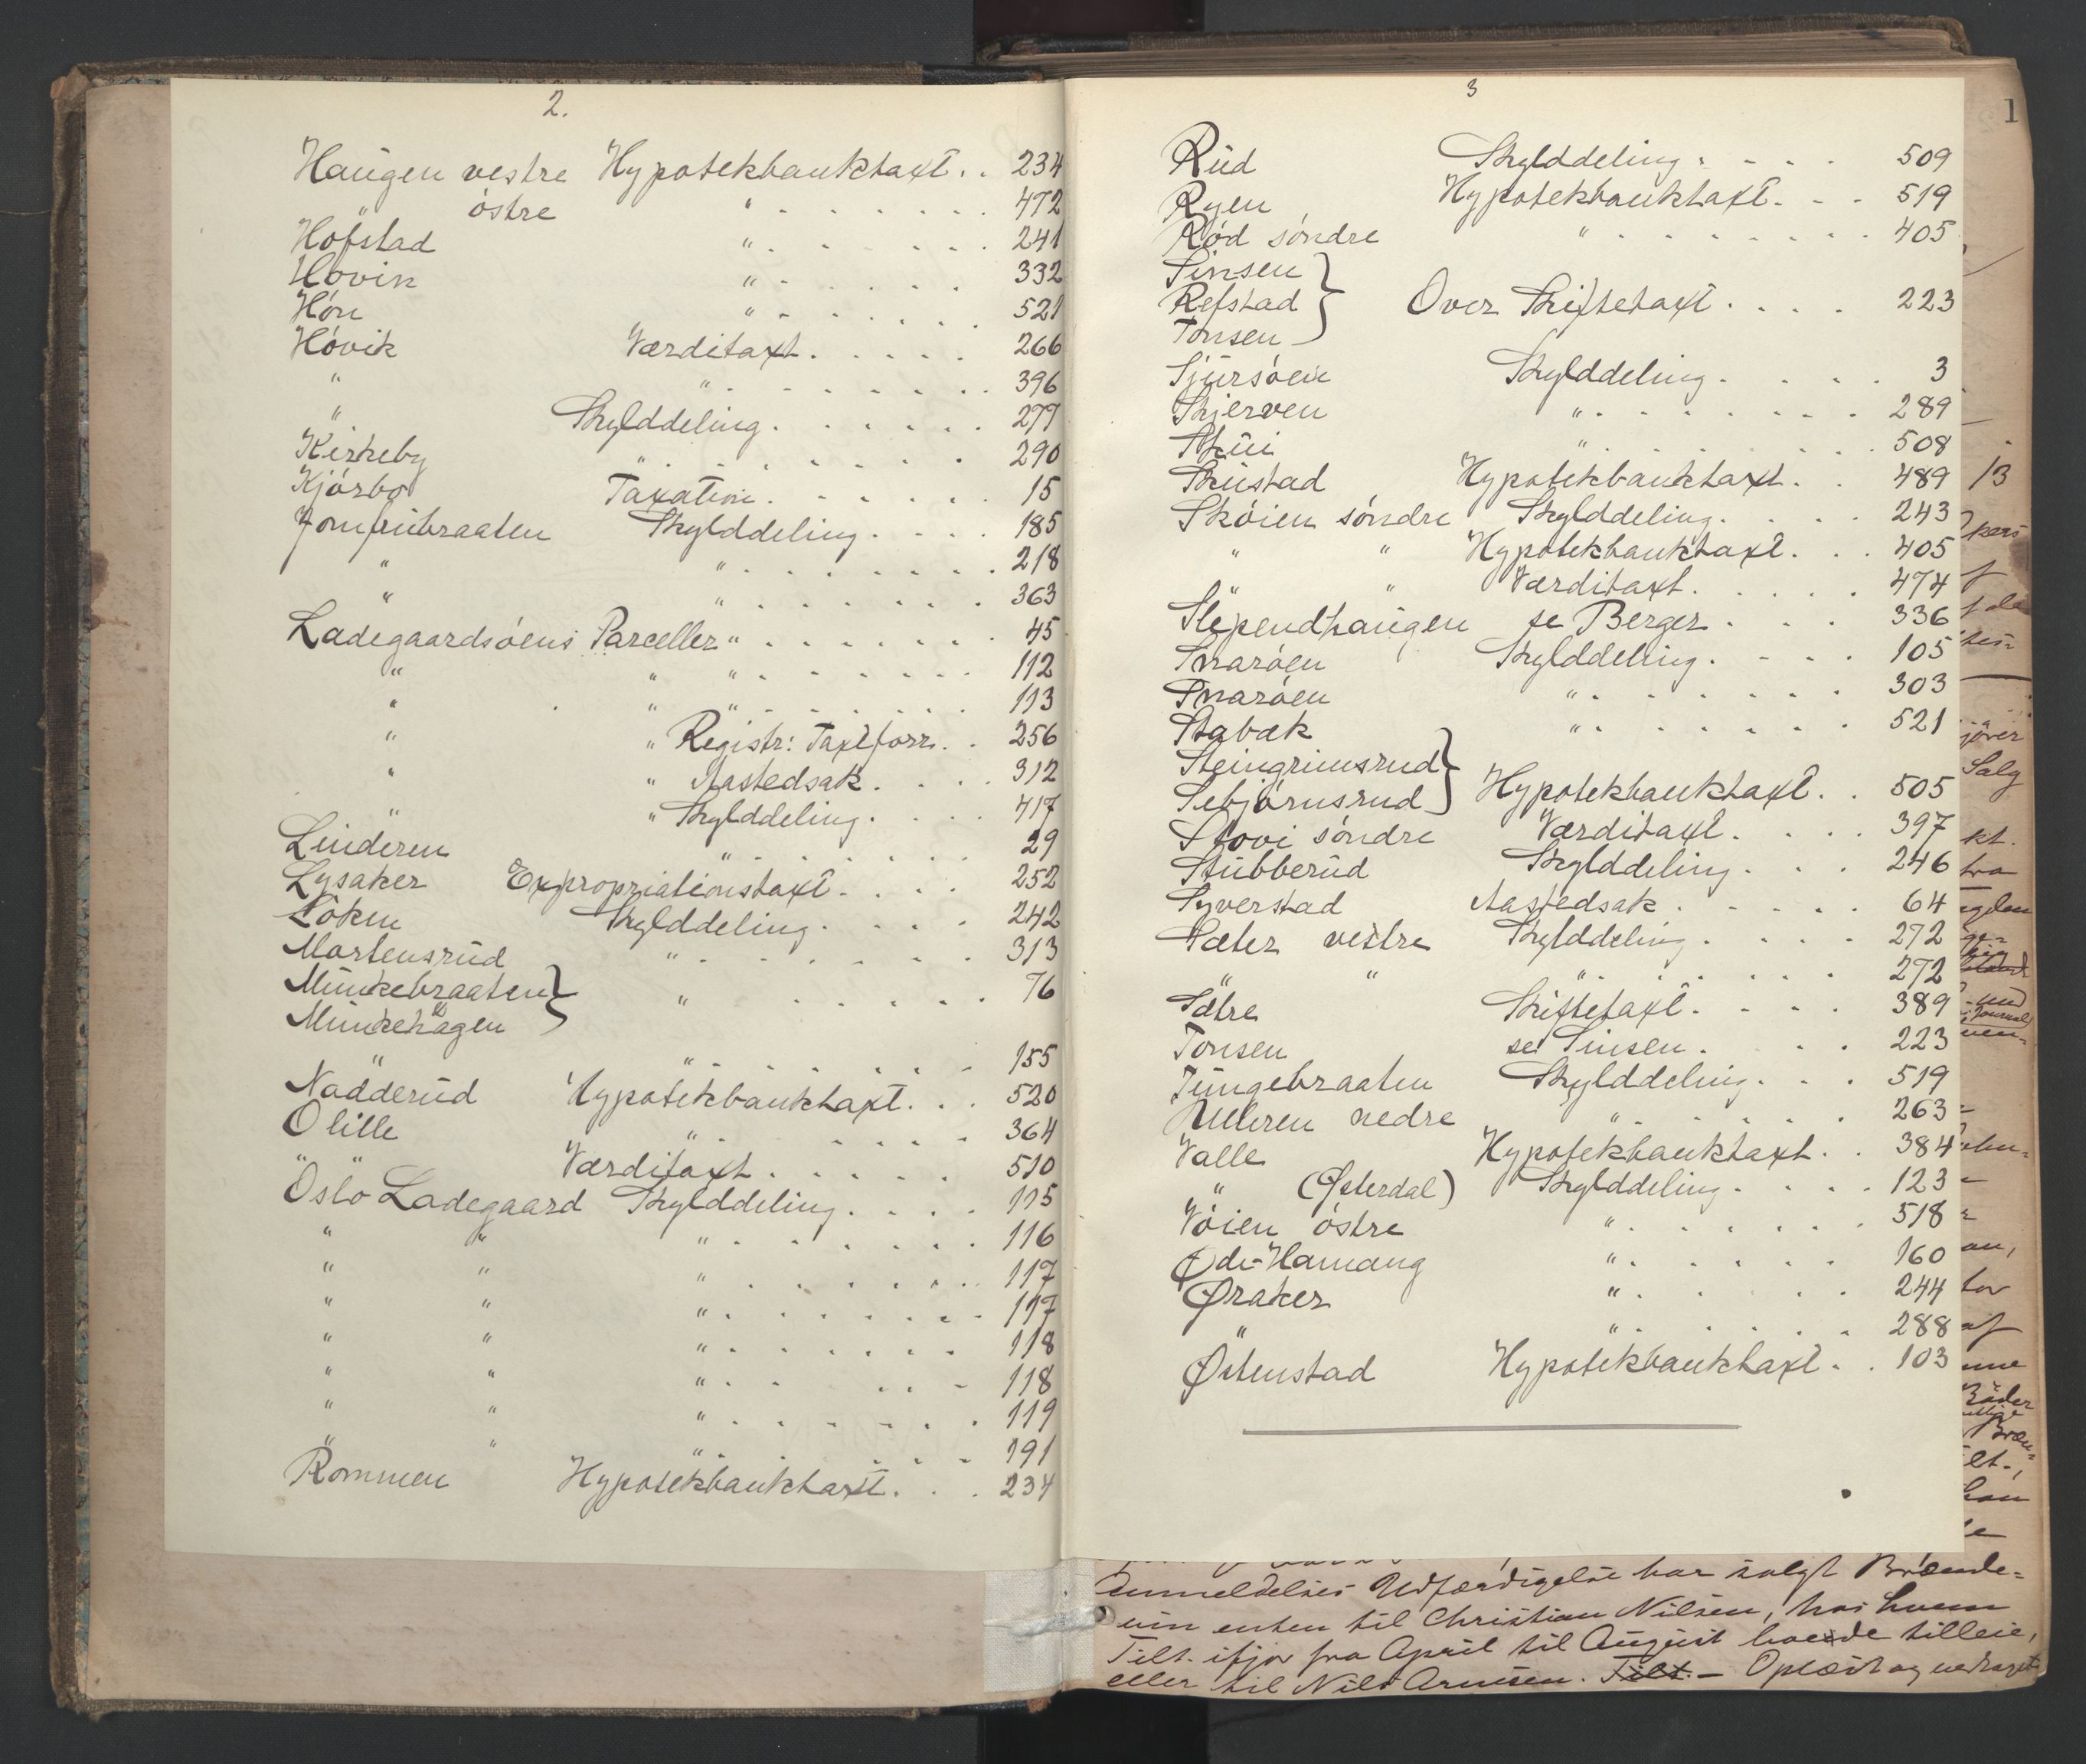 2.
Haugen vestre Hypotekbanktaxt . . 234
østre " . . . . . . . 472
Hofstad " . . . . . . 241
Hovin " . . . . . . 332
Hón " . . . . . . 521
Hóvik Værditaxt . . . . . 266
" " . . . . . . . 396
" Skylddeling . . . . . . 277
Kirkeby " . . . . . . . 290
Kjórbo Taxation . . . . . . 15
Jomfrubraaten Skylddeling . . . . 185
" " . . . . . . . . 218
" " . . . . . . . 363
Ladegaardsóens Parceller " . . . . . . . 45
" " " . . . . . . . 112
" " " . . . . . . . 113
" " Registr: Taxtforr. . . 256
" " Aastedsak . . . . 312
" " Skylddeling . . . . 417
Linderen " . . . . . . . 29
Lysaker Expropriationstaxt . . . . 252
Lóken Skylddeling . . . . . 242
Mortensrud " . . . . . . . 313
Munkebraaten } " . . . . . . 76
Munkehagen
" . . . . . . . 155
Nadderud Hypotekbanktaxt . . . 520
O lille " . . . . . 364
" " Værditaxt . . . . . 510
Oslo Ladegaard Skylddeling . . . . 115
" " " . . . . . . . 116
" " " . . . . . . . 117
" " " . . . . . . . 117
" " " . . . . . . . 118
" " " . . . . . . 118
" " " . . . . . . . 119
" " " . . . . . . . 191
Rommen Hypotekbanktaxt . . . 234
3
Rud Skylddeling . . . . 509
Ryen Hypotekbanktaxt . . . 519
Ród sóndre " . . . . . . . . 405
Sinsen }
Refstad } Over Skiftetaxt . . . . 223
Tonsen }
Sjursóen Skylddeling . . . . . 3
Skjerven " . . . . . . . . 289
Skui " . . . . . . . . 508
Skustad Hypotekbanktaxt . . 489
Skóien sóndre Skylddeling . . . . 243
" " Hypotekbanktaxt . . . 405
" " Værditaxt . . . . . 474
Slependhaugen se Berger . . . . 336
Snaróen Skylddeling . . . . 105
Snaróen " . . . . . . . 303
Stabæk " . . . . . . . 521
Steingrimsrud }
Sebjórnsrud } Hypotekbanktaxt . . 505
Stovi sóndre Værditaxt . . . . 397
Stubberud Skylddeling . . . 246
Syverstad Aastedsak . . . . . 64
Sæter vestre Skylddeling . . . . 272
" " " . . . . . . . 272
Sætre Skiftetaxt . . . . 389
Tonsen se Sinsen . . . 223
Tungebraaten Skylddeling . . . 519
Ulleren nedre " . . . . . . 263
Valle Hypotekbanktaxt . . 384
" (Østerdal) Skylddeling . . . . 123
Vóien óstre " . . . . . . . 518
Øde-Hamang " . . . . . . 160
Øraker " . . . . . 244
" " . . . . . . 288
Østenstad Hypotekbanktaxt . . 103
1
13
Salg
kt.
af
Anmeldelses Udfærdigelse har solgt Brænde=
vin enten til Christian Nilsen, hos hvem
Tilt. ifjor fra April til August boede tilleie,
eller til Nils Arnesen. Tilt. — Oplæst og vedtaget